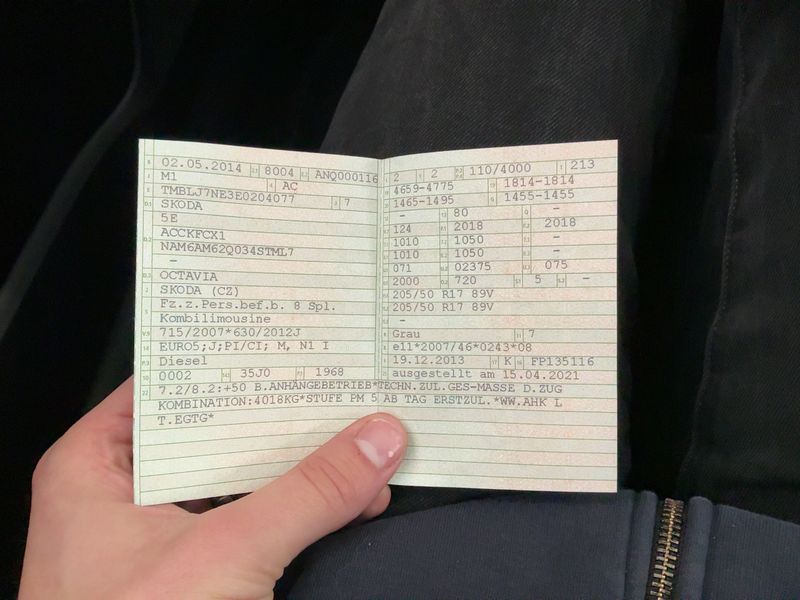 02.05.2014 8004 ANQ000116
M1 AC
TMBLJ7NE3E0204077 7
SKODA
5E
ACCKFCX1
NAM6AM62Q034STML7
–
OCTAVIA
SKODA (CZ)
Fz.z.Pers.bef.b. 8 Spl.
Kombilimousine
715/2007*630/2012J
EURO5;J;PI/CI; M, N1 I
Diesel
0002 35J0 1968
2 2 110/4000 213
4659-4775 1814-1814
1465-1495 1455-1455
– 80 –
124 2018 2018
1010 1050 –
1010 1050 –
071 02375 075
2000 720 5 –
205/50 R17 89V
205/50 R17 89V
–
Grau 7
e11*2007/46*0243*08
19.12.2013 K FP135116
ausgestellt am 15.04.2021
7.2/8.2:+50 B.ANHÄNGEBETRIEB*TECHN.ZUL.GES-MASSE D.ZUG
KOMBINATION:4018KG*STUFE PM 5 AB TAG ERSTZUL.*WW.AHK L
T.EGTG*